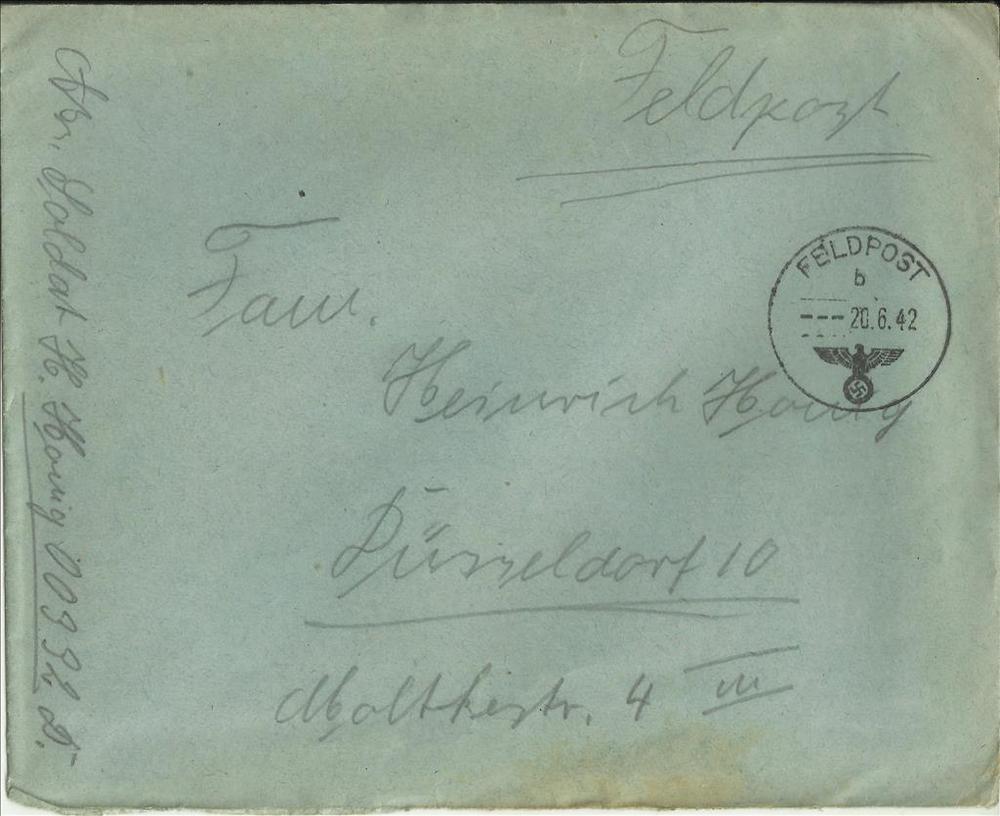 Feldpost
FELDPOST
b
--- 20.6.42
Fam.
Heinrich Honig
Düsseldorf 10
Moltkestr. 4 III
Abs. Soldat H. Honig 00932 D.